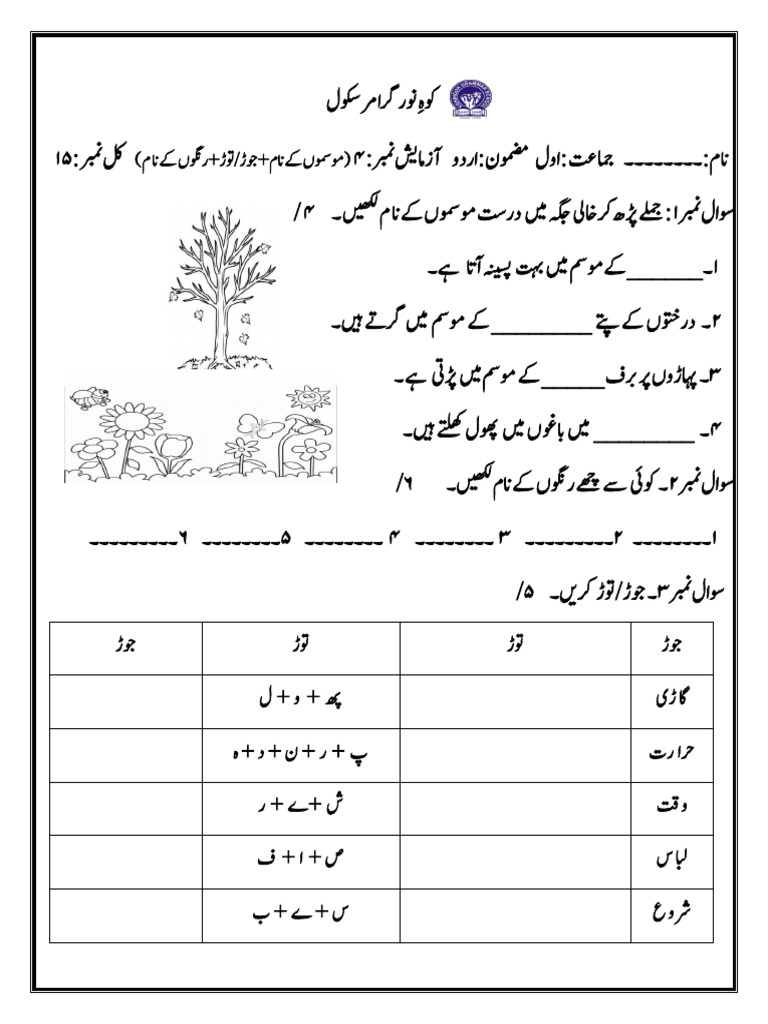 کوہِ نور گرامر سکول
نام:۔۔۔۔۔۔۔۔۔ جماعت:اول مضمون:اردو آزمایش نمبر:۴ (موسموں کے نام+جوڑ/توڑ+رنگوں کے نام) کل نمبر:۱۵
سوال نمبر۱: جملے پڑھ کر خالی جگہ میں درست موسموں کے نام لکھیں۔ ۴/
۱۔________کے موسم میں بہت پسینہ آتا ہے۔
۲۔ درختوں کے پتے __________کے موسم میں گرتے ہیں۔
۳۔ پہاڑوں پر برف______کے موسم میں پڑتی ہے۔
۴۔ __________ میں باغوں میں پھول کھلتے ہیں۔
سوال نمبر۲۔ کوئی سے چھے رنگوں کے نام لکھیں۔ ۶/
۱۔۔۔۔۔۔۔۔۔ ۲۔۔۔۔۔۔۔۔۔ ۳ ۔۔۔۔۔۔۔۔ ۴ ۔۔۔۔۔۔۔۔ ۵۔۔۔۔۔۔۔۔ ۶۔۔۔۔۔۔۔۔۔
سوال نمبر۳۔ جوڑ/توڑ کریں۔ ۵/
جوڑ توڑ توڑ جوڑ
گاڑی پھ + و + ل
حرارت پ + ر + ن + د + ہ
وقت ش + ے + ر
لباس ص + ا + ف
شروع س + ے + ب